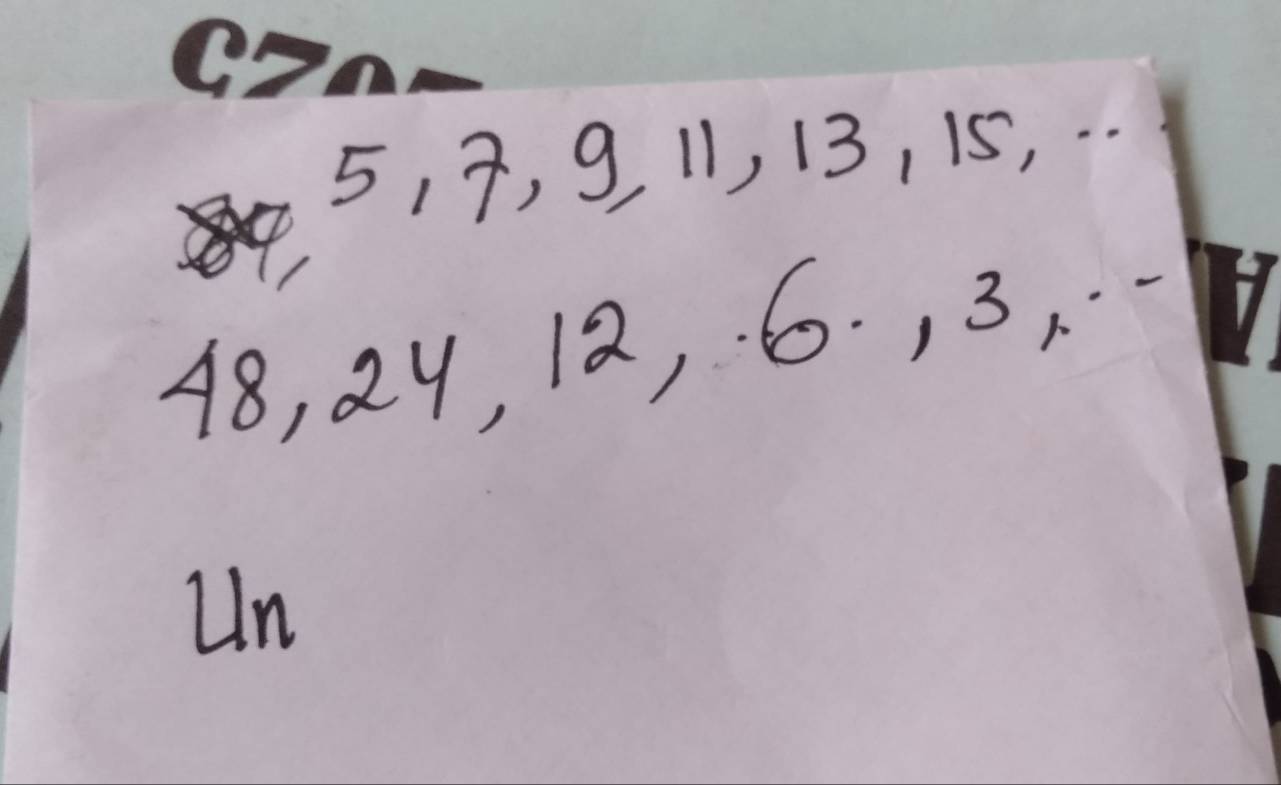 5, 7, 9, 11, 13, 15, ...
48, 24, 12, .6. , 3, ...
Un